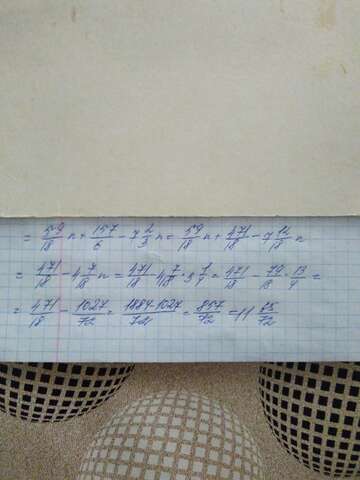 = 59/18 n + 157/6 - 7 2/3 n = 59/18 n + 471/18 - 7 12/18 n
= 471/18 - 4 7/18 n = 471/18 - 4 7/18 · 3 1/4 = 471/18 - 79/18 · 13/4 =
= 471/18 - 1027/72 = 1884-1027/72 = 857/72 = 11 65/72